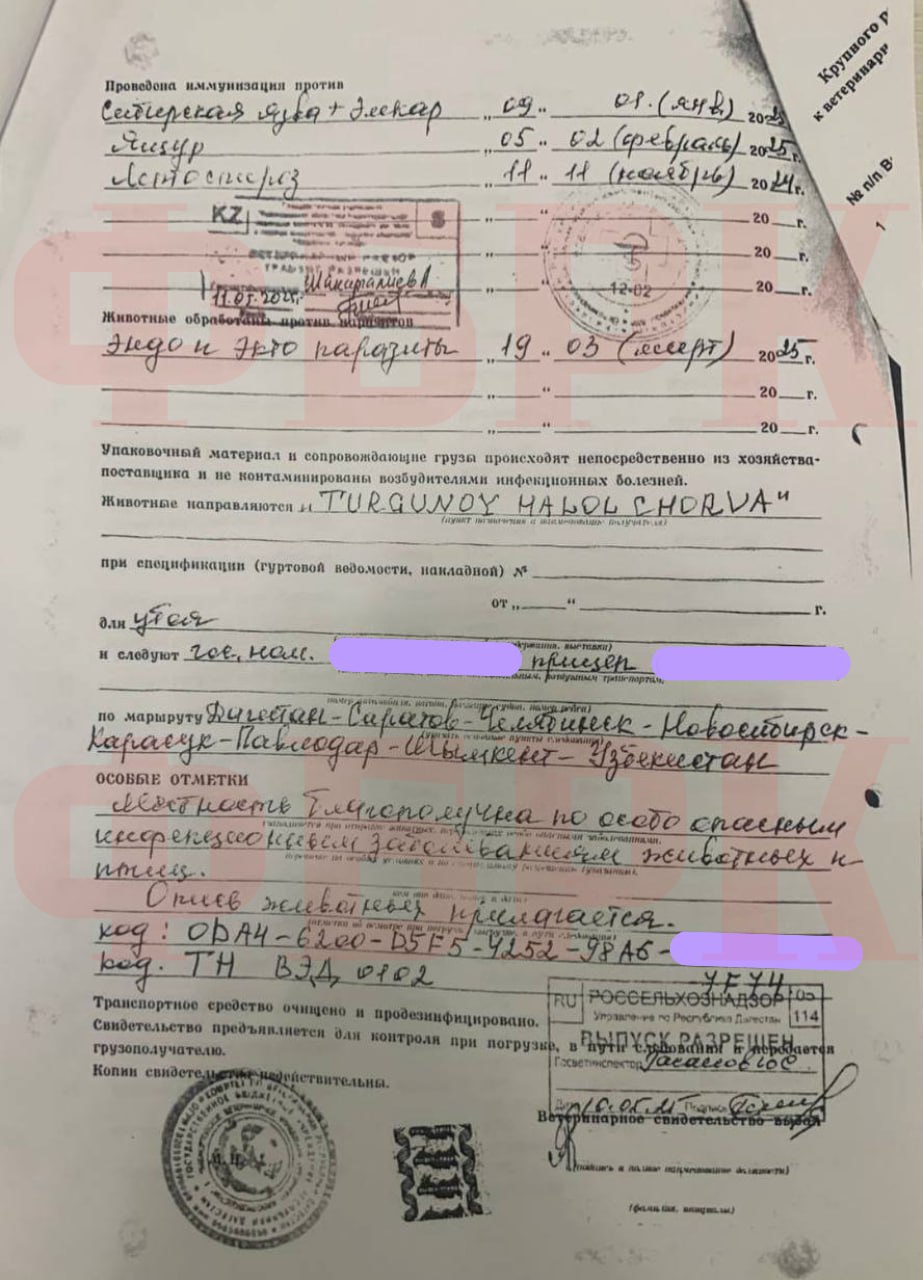 Крупного р
к ветеринарн
№ п/п В
1
Проведена иммунизация против
Сибирская язва + Эмкар „ 09 “ 01. (янв.) 2025
Ящур „ 05 “ 02 (февраль) 2025 г.
Лептоспироз „ 11 “ 11 (ноябрь) 2024 г.
„ “ 20 г.
KZ 8
„ “ 20 г.
12-02
„ “ 20 г.
11.05.2025
Животные обработаны против паразитов
Эндо и Экто паразиты „ 19 “ 03 (март) 2025 г.
„ “ 20 г.
„ “ 20 г.
Упаковочный материал и сопровождающие грузы происходят непосредственно из хозяйства-
поставщика и не контаминированы возбудителями инфекционных болезней.
Животные направляются „TURGUNOY HALOL CHORVA"
(пункт назначения и наименование получателя)
при спецификации (гуртовой ведомости, накладной) №
от „ “ г.
для убоя
и следуют гос. ном. прицеп
по маршруту Дагестан-Саратов-Челябинск-Новосибирск-
Карасук-Павлодар-Шымкент-Узбекистан
ОСОБЫЕ ОТМЕТКИ
Местность благополучна по особо опасным
инфекционным заболеваниям животных и
птиц.
Опись животных прилагается.
код: 0DA4-6200-D5F5-4252-98A6-
7F74
код. ТН ВЭД 0102
RU РОССЕЛЬХОЗНАДЗОР 05
Управление по Республике Дагестан 114
ВЫПУСК РАЗРЕШЕН
Госветинспектор
Дата 10.05.25 Подпись
Транспортное средство очищено и продезинфицировано.
Свидетельство предъявляется для контроля при погрузке, в пути следования и передается
грузополучателю.
Копии свидетельства недействительны.
Ветеринарное свидетельство выдал
(подпись и полное наименование должности)
(фамилия, инициалы)
ФБРК
ФБРК